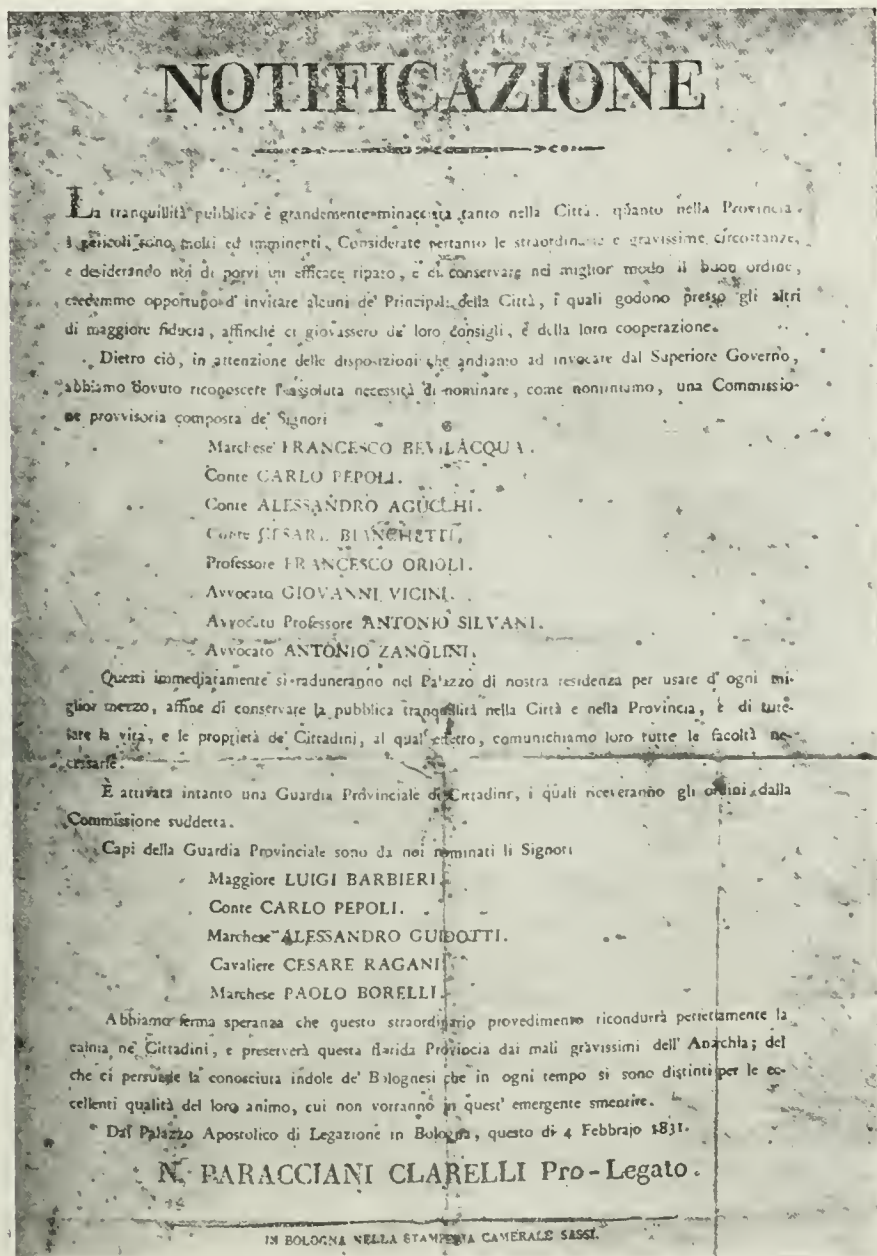 NOTIFICAZIONE
La tranquillità pubblica è grandemente minacciata tanto nella Città, quanto nella Provincia.
I pericoli sono molti ed imminenti. Considerate pertanto le straordinarie e gravissime circostanze,
e desiderando noi di porvi un efficace riparo, e di conservare nel miglior modo il buon ordine,
credemmo opportuno d' invitare alcuni de' Principali della Città, i quali godono presso gli altri
di maggiore fiducia, affinché ci giovassero de' loro consigli, e della loro cooperazione.
Dietro ciò, in attenzione delle disposizioni che andiamo ad invocare dal Superiore Governo,
abbiamo dovuto riconoscere l' assoluta necessità di nominare, come nominiamo, una Commissio-
ne provvisoria composta de' Signori
Marchese FRANCESCO BEVILACQUA.
Conte CARLO PEPOLI.
Conte ALESSANDRO AGUCCHI.
Conte CESARE BIANCHETTI.
Professore FRANCESCO ORIOLI.
Avvocato GIOVANNI VICINI.
Avvocato Professore ANTONIO SILVANI.
Avvocato ANTONIO ZANOLINI.
Questi immediatamente si raduneranno nel Palazzo di nostra residenza per usare d' ogni mi-
glior mezzo, affine di conservare la pubblica tranquillità nella Città e nella Provincia, e di tute-
lare la vita, e le proprietà de' Cittadini, al qual' effetto, comunichiamo loro tutte le facoltà ne-
cessarie.
È attivata intanto una Guardia Provinciale di Cittadini, i quali riceveranno gli ordini dalla
Commissione suddetta.
Capi della Guardia Provinciale sono da noi nominati li Signori
Maggiore LUIGI BARBIERI.
Conte CARLO PEPOLI.
Marchese ALESSANDRO GUIDOTTI.
Cavaliere CESARE RAGANI.
Marchese PAOLO BORELLI.
Abbiamo ferma speranza che questo straordinario provedimento ricondurrà perfettamente la
calma ne' Cittadini, e preserverà questa florida Provincia dai mali gravissimi dell' Anarchia; del
che ci persuade la conosciuta indole de' Bolognesi che in ogni tempo si sono distinti per le ec-
cellenti qualità del loro animo, cui non vorranno in quest' emergente smentire.
Dal Palazzo Apostolico di Legazione in Bologna, questo dì 4 Febbrajo 1831.
N. PARACCIANI CLARELLI Pro-Legato.
IN BOLOGNA NELLA STAMPERIA CAMERALE SASSI.